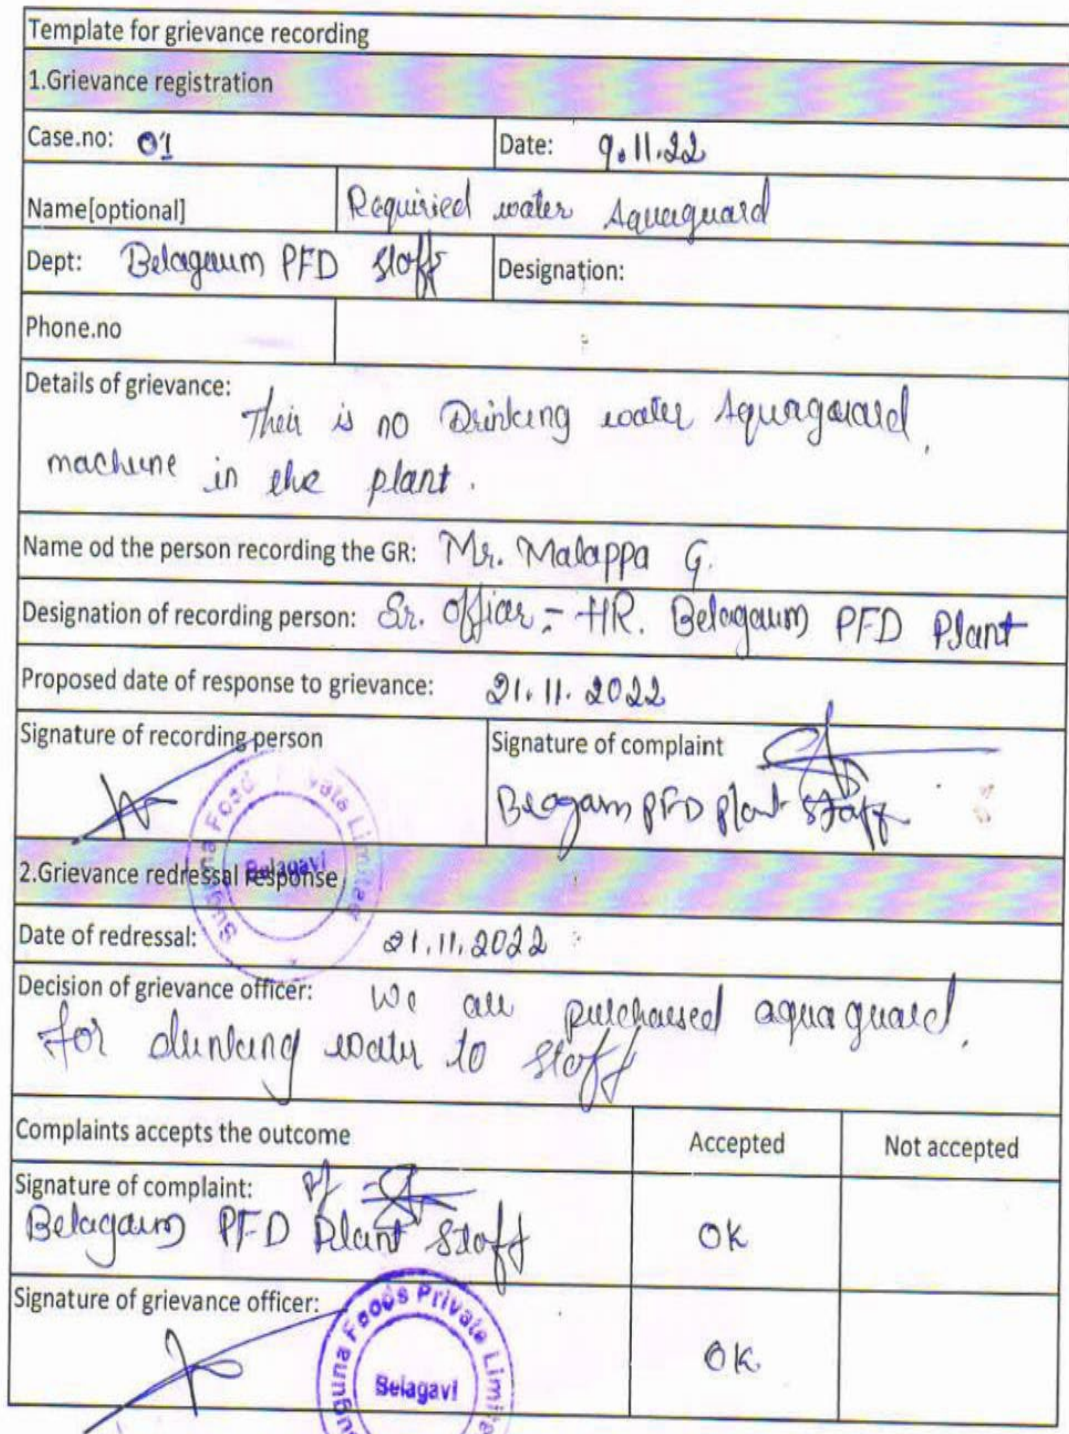 Template for grievance recording
1.Grievance registration
Case.no: 01 Date: 9.11.22
Name[optional] Requiried water Aquaguard
Dept: Belagaum PFD staff Designation:
Phone.no
Details of grievance:
Their is no Drinking water Aquaguard
machine in the plant.
Name od the person recording the GR: Mr. Malappa G.
Designation of recording person: Sr. Officer - HR. Belagaum PFD Plant
Proposed date of response to grievance: 21.11.2022
Signature of recording person Signature of complaint
Beagam PFD plant staff
Suguna Foods Private Limited
Belagavi
2.Grievance redressal response
Date of redressal: 21.11.2022
Decision of grievance officer: We are purchased aquaguard.
for drinking water to staff
Complaints accepts the outcome Accepted Not accepted
Signature of complaint:
Belagaum PFD Plant Staff OK
Signature of grievance officer: OK
Suguna Foods Private Limite
Belagavi